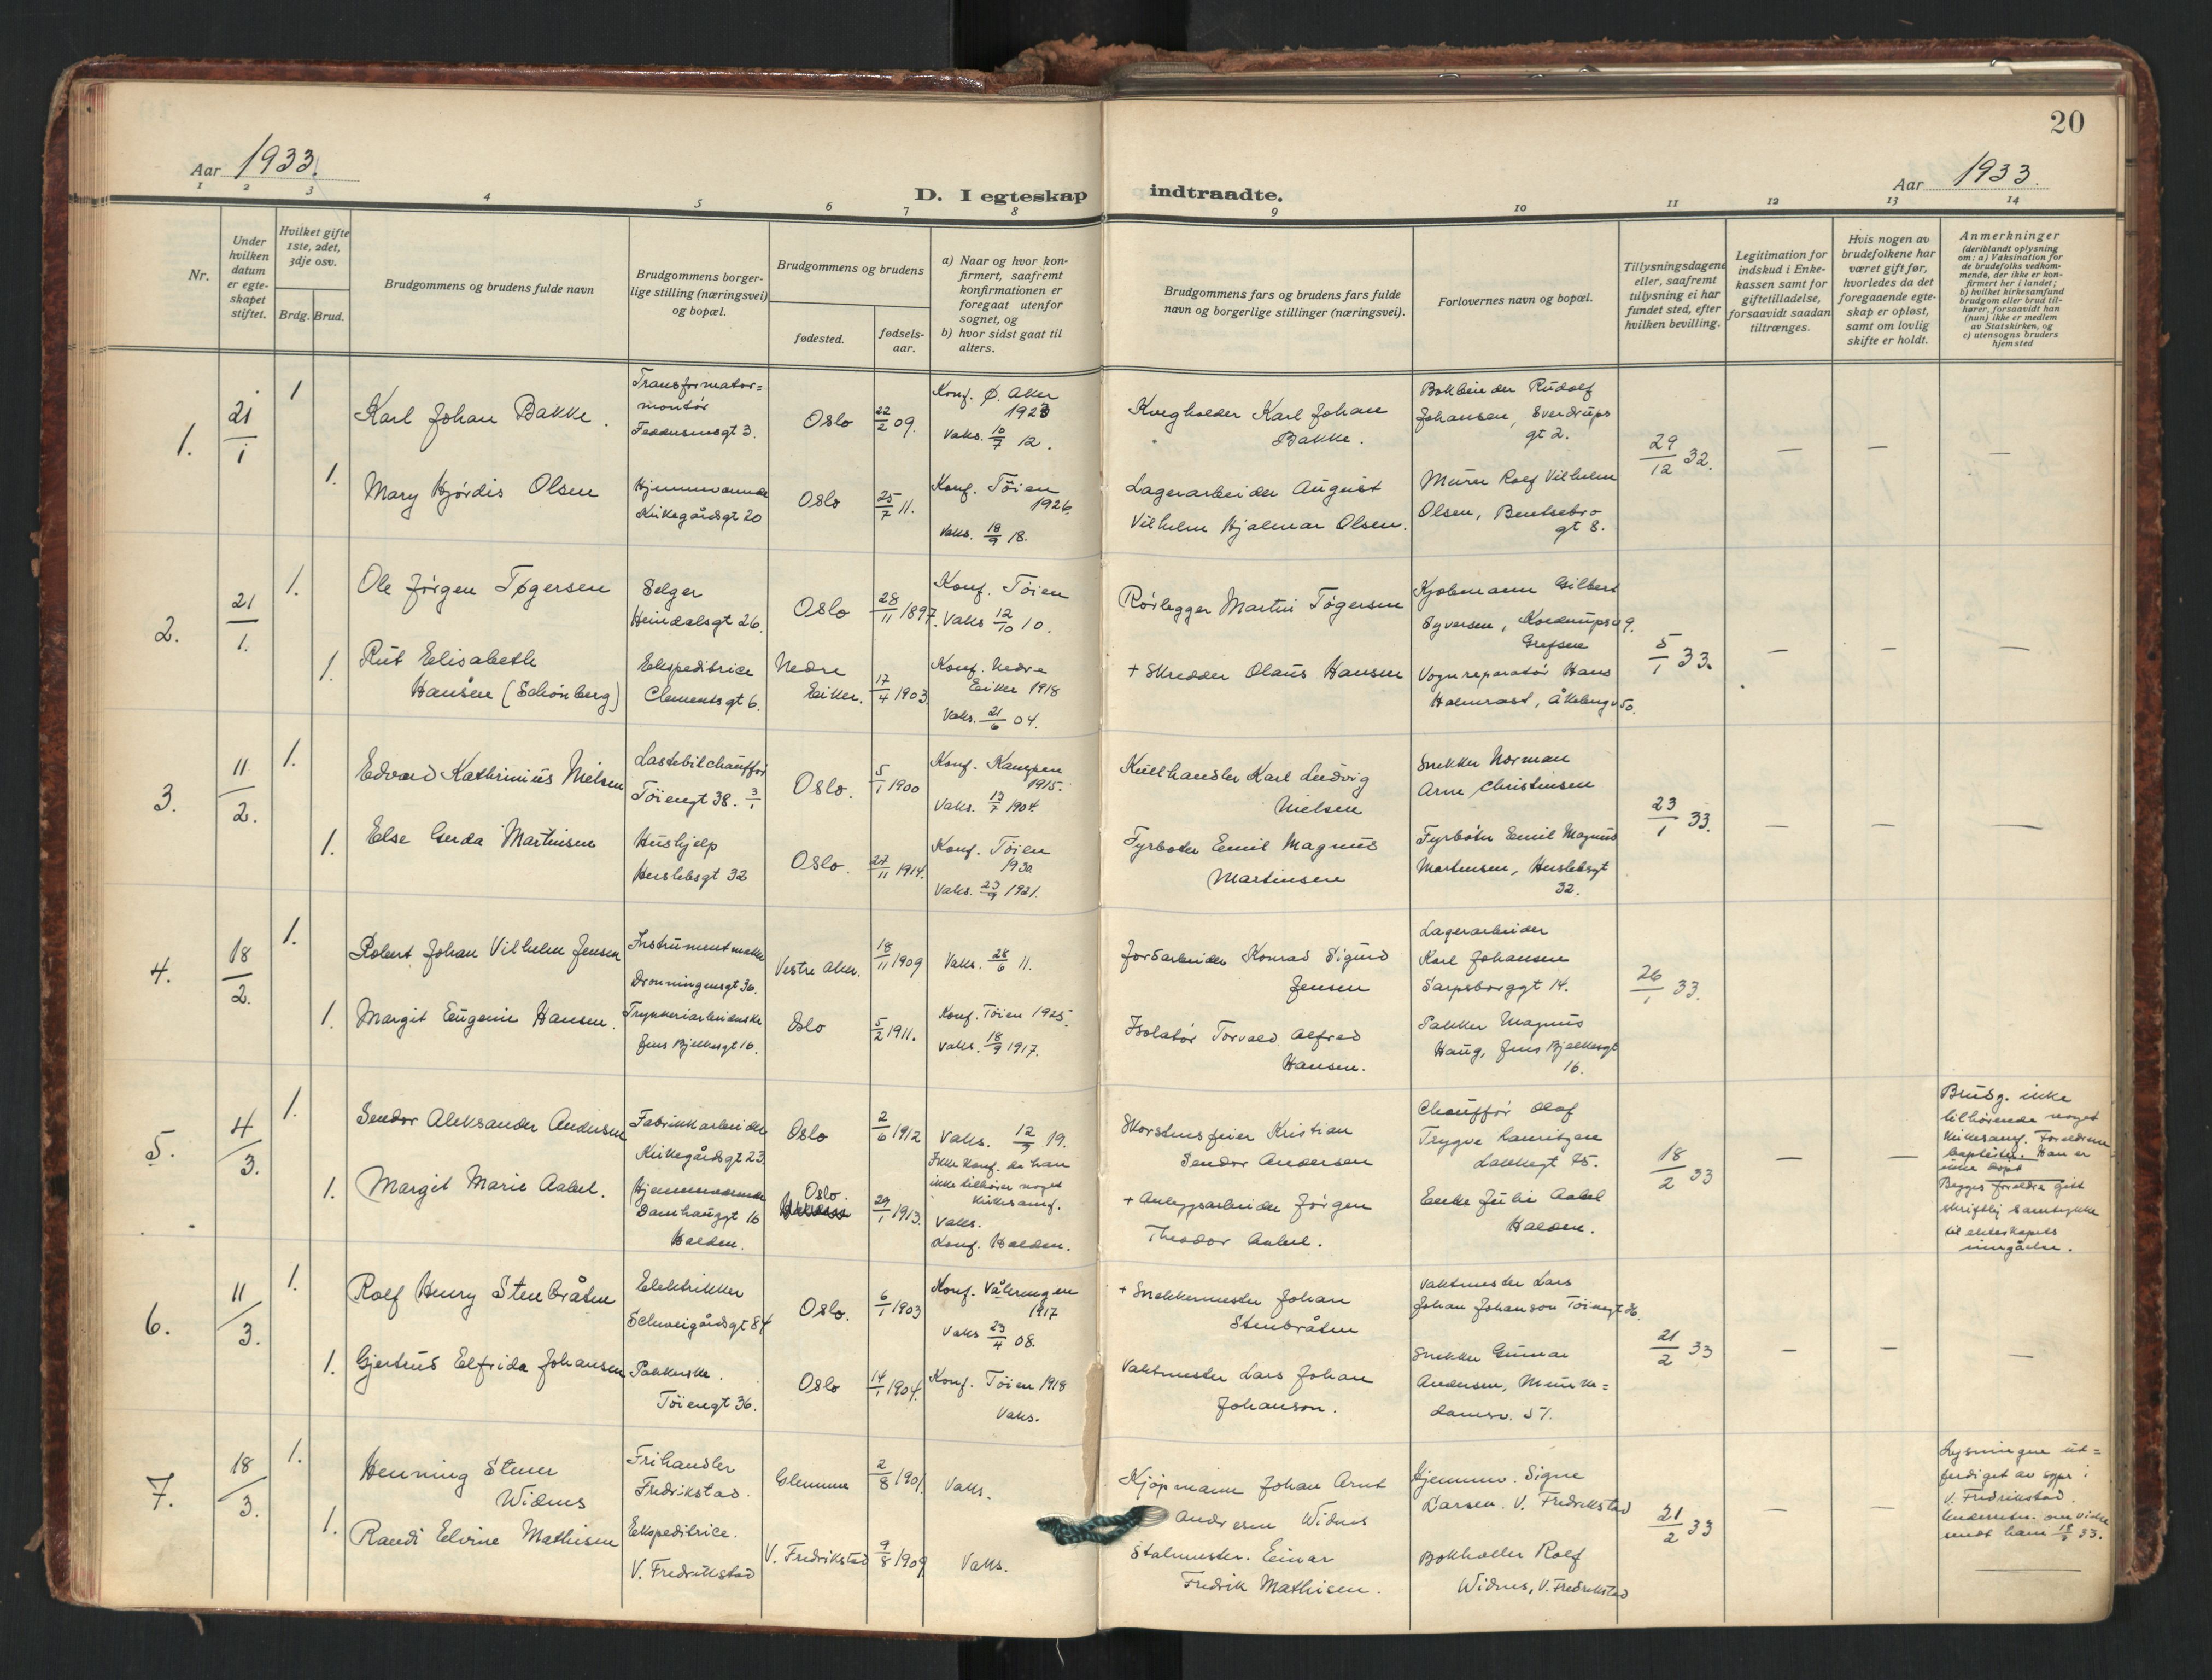 20
Aar 1933.
D. I egteskap indtraadte.
Aar 1933.
1 2 3 4 5 6 7 8 9 10 11 12 13 14
Nr.
Under
hvilken
datum
er egte-
skapet
stiftet.
Hvilket gifte
1ste, 2det,
3dje osv.
Brdg. Brud.
Brudgommens og brudens fulde navn
Brudgommens borger-
lige stilling (næringsvei)
og bopæl.
Brudgommens og brudens
fødested.
fødsels-
aar.
a) Naar og hvor kon-
firmert, saafremt
konfirmationen er
foregaat utenfor
sognet, og
b) hvor sidst gaat til
alters.
Brudgommens fars og brudens fars fulde
navn og borgerlige stillinger (næringsvei).
Forlovernes navn og bopæl.
Tillysningsdagene
eller, saafremt
tillysning ei har
fundet sted, efter
hvilken bevilling.
Legitimation for
indskud i Enke-
kassen samt for
giftetilladelse,
forsaavidt saadan
tiltrænges.
Hvis nogen av
brudefolkene har
været gift før,
hvorledes da det
foregaaende egte-
skap er opløst,
samt om lovlig
skifte er holdt.
Anmerkninger
(deriblandt oplysning
om: a) Vaksination for
de brudefolks vedkom-
mende, der ikke er kon-
firmert her i landet;
b) hvilket kirkesamfund
brudgom eller brud til-
hører, forsaavidt han
(hun) ikke er medlem
av Statskirken, og
c) utensogns bruders
hjemsted
1.
21/1
1
Karl Johan Bakke.
Transformator=
montør
gt 3.
Oslo
22/2 09.
Konf. Ø. Aker
1923
Vaks. 10/7 12.
Karl Johan
Bakke.
Bokbinder Rudolf
Johansen, Sverdrups
gt 2.
29/12 32.
—
—
—
1.
Mary Hjórdis Olsen
Hjemmeværende
Kirkegårdsgt 20
Oslo
25/7 11.
Konf. Tøien
1926.
Vaks. 18/9 18.
Lagerarbeider August
Vilhelm Hjalmar Olsen.
Murer Rolf Vilhelm
Olsen, Bentsebro
gt 8.
2.
21/1.
1.
Ole Jørgen Tøgersen
Selger
Heimdalsgt 26.
Oslo
28/11 1897.
Konf. Tøien
Vaks 12/10 10.
Rørlegger Martin Tøgersen
Kjøbmann Gilbert
Syversen, 9.
Grefsen
5/1 33.
—
—
—
1.
Rut Elisabeth
Hansen (Schønberg)
Ekspeditrice
Clementsgt 6.
Nedre
Eiker.
17/4 1903.
Konf. Nedre
Eiker 1918
Vaks. 21/6 04.
+ Skredder Olaus Hansen
Vognreparatør Hans
Holmrast, Åkebergv 50.
3.
11/2.
1.
Edvard Kathrinius Nielsen
Lastebilchauffør
Tøiengt 38. 3/1
Oslo.
5/1 1900
Konf. Kampen
1915.
Vaks. 13/7 1904.
Kullhandler Karl Ludvig
Nielsen
Snekker Norman
Arne Christensen
23/1 33.
—
—
—
1.
Else Gerda Martinsen
Hushjelp
Herslebsgt 32
Oslo.
27/11 1914.
Konf. Tøien
1930.
Vaks. 23/9 1921.
Fyrbøter Emil Magnus
Martinsen
Fyrbøter Emil Magnus
Martinsen, Herslebsgt
32.
4.
18/2.
1.
Robert Johan Vilhelm Jensen
Instrumentmaker
Dronningensgt 36.
Vestre Aker.
18/11 1909
Vaks. 28/6 11.
Jordarbeider Konrad Sigurd
Jensen
Lagerarbeider
Karl Johansen
Sarpsborggt 14.
26/1 33.
1.
Margit Eugenie Hansen.
Trykkeriarbeiderske
Jens Bjelkesgt 16.
Oslo
5/2 1911.
Konf. Tøien 1925.
Vaks. 18/9 1917.
Isolatør Torvald Alfred
Hansen.
Pakker Magnus
Haug, Jens Bjelkesgt
16.
5.
4/3.
1.
Sendor Aleksander Andersen
Fabrikkarbeider
Kirkegårdsgt 23.
Oslo
2/6 1912
Vaks. 12/9 19.
Ikke konf. da han
ikke tilhører noget
kirkesamf.
Skorstensfeier Kristian
Sendor Andersen
Chauffør Olaf
Trygve Lauritzen
Lakkegt 75.
18/2 33
—
—
Brudg. ikke
tilhørende noget
kirkesamf. Foreldrene
baptister. Han er
ikke døpt
Begges foreldre gitt
skriftlig samtykke
til ekteskapets
inngåelse.
1.
Margit Marie Aabel.
Hjemmeværende
Damhauggt 16
Halden.
Oslo.
29/1 1913.
Vaks.
Konf. Halden.
+ Anleggsarbeider Jørgen
Theodor Aabel.
Enke Julie Aabel
Halden.
6.
11/3.
1.
Rolf Henry Stenbråten
Elektrikker
Schweigårdsgt 84
Oslo.
6/1 1903
Konf. Vålerengen
1917
Vaks 23/4 08.
+ Snekkermester Johan
Stenbråten
Vaktmester Lars
Johan Johanson Tøiengt 36.
21/2 33
—
—
—
1.
Gjertrud Elfrida Johansen
Pakkerske.
Tøiengt 36.
Oslo
14/1 1904.
Konf. Tøien 1918
Vaks.
Vaktmester Lars Johan
Johanson.
Snekker Gunnar
Andersen, Munke=
damsv. 51.
7.
18/3.
1.
Henning Stener
Widnes
Frihandler
Fredrikstad.
Glemmen
2/8 1901.
Vaks.
Kjøpmann Johan Arnt
Andresen Widnes
Hjemmev. Signe
Larsen. V. Fredrikstad
21/2 33
—
—
Lysningen ut=
ferdiget av sogpr i
V. Fredrikstad.
Underretn. om
sendt ham 18/3 33.
1.
Randi Elvine Mathisen
Ekspeditrice.
V. Fredrikstad
V. Fredrikstad
9/8 1909
Vaks.
Stalmester. Einar
Fredrik Mathisen.
Bokholder Rolf
Widnes, V. Fredrikstad